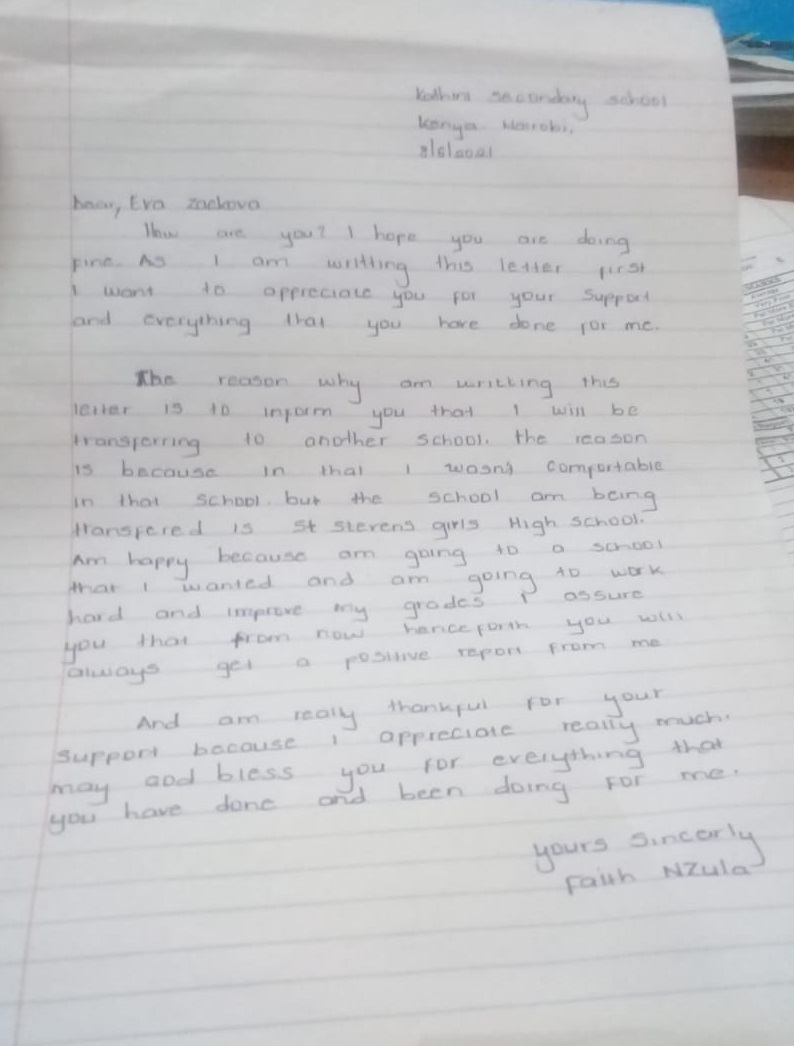 Kathini secondary school
Kenya Nairobi.
8/6/2021
Dear, Eva Zackova
How are you? I hope you are doing
fine. As I am writting this letter first
I want to appreciate you for your support
and everything that you have done for me.
The reason why am writting this
letter is to inform you that I will be
transferring to another school. the reason
is because in that I wasn't comfortable
in that school. but the school am being
transfered is St Stevens girls High school.
Am happy because am going to a school
that I wanted and am going to work
hard and improve my grades I assure
you that from now henceforth you will
always get a positive report from me
And am really thankful for your
support because I appreciate really much.
may God bless you for everything that
you have done and been doing for me.
yours sincerly
Faith Nzula